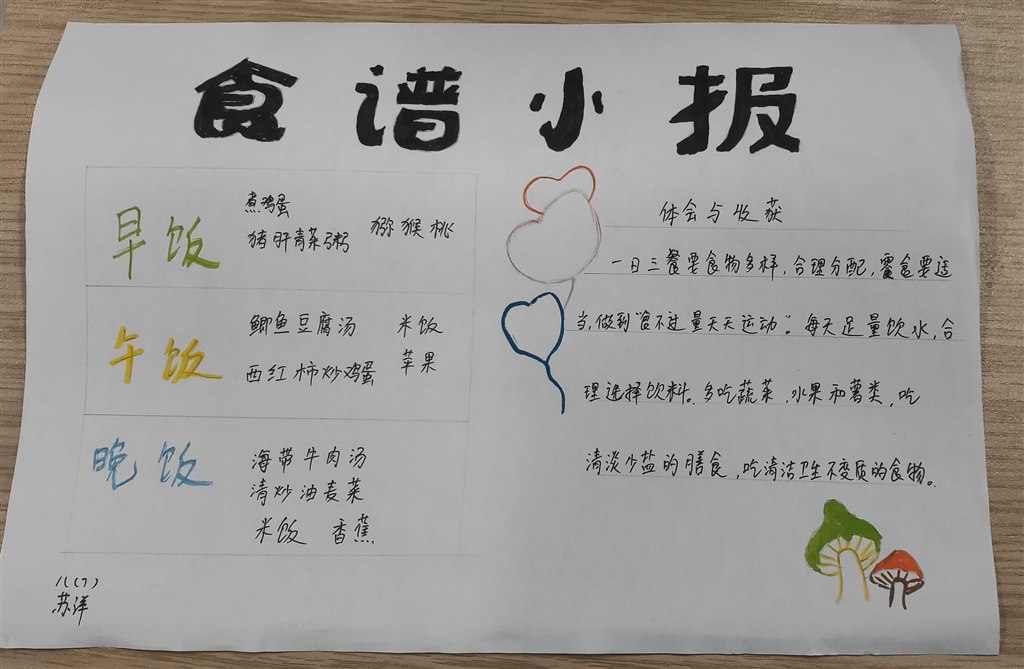 食谱小报
早饭
煮鸡蛋
猪肝青菜粥 猕猴桃
午饭
鲫鱼豆腐汤 米饭
西红柿炒鸡蛋 苹果
晚饭
海带牛肉汤
清炒油麦菜
米饭 香蕉
八(7)
苏洋
体会与收获
一日三餐要食物多样,合理分配,零食要适
当,做到"食不过量天天运动"。每天足量饮水,合
理选择饮料。多吃蔬菜,水果和薯类,吃
清淡少盐的膳食,吃清洁卫生不变质的食物。